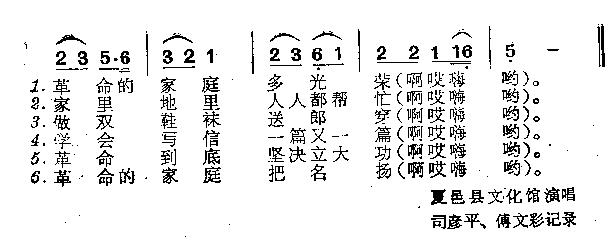 2 3 5·6 | 3 2 1 | 2 3 6 1 | 2 2 1 16 | 5 -
1. 革 命的 家 庭 多 光 荣(啊哎嗨 哟)。
2. 家 里 地 里 人 人 都 帮 忙(啊哎嗨 哟)。
3. 做 双 鞋 袜 送 郎 穿(啊哎嗨 哟)。
4. 学 会 写 信 一 篇 又 一 篇(啊哎嗨 哟)。
5. 革 命 到 底 坚 决 立 大 功(啊哎嗨 哟)。
6. 革 命的 家 庭 把 名 扬(啊哎嗨 哟)。
夏邑县文化馆演唱
司彦平、傅文彩记录